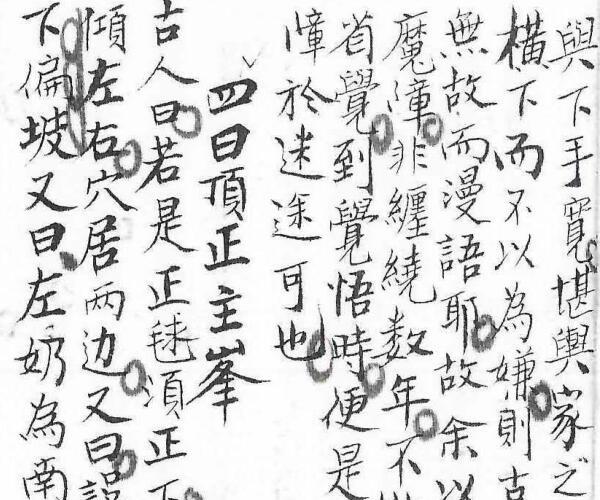 與下手寬堪輿家之
橫下而不以為嫌則古
無故而漫語耶故余以
魔障非纏繞数年不
省覺到覺悟時便是
障於迷途可也
四曰頂正主峯
古人曰若是正毬須正下
傾左右穴居两边又曰
下偏坡又曰左奶為南